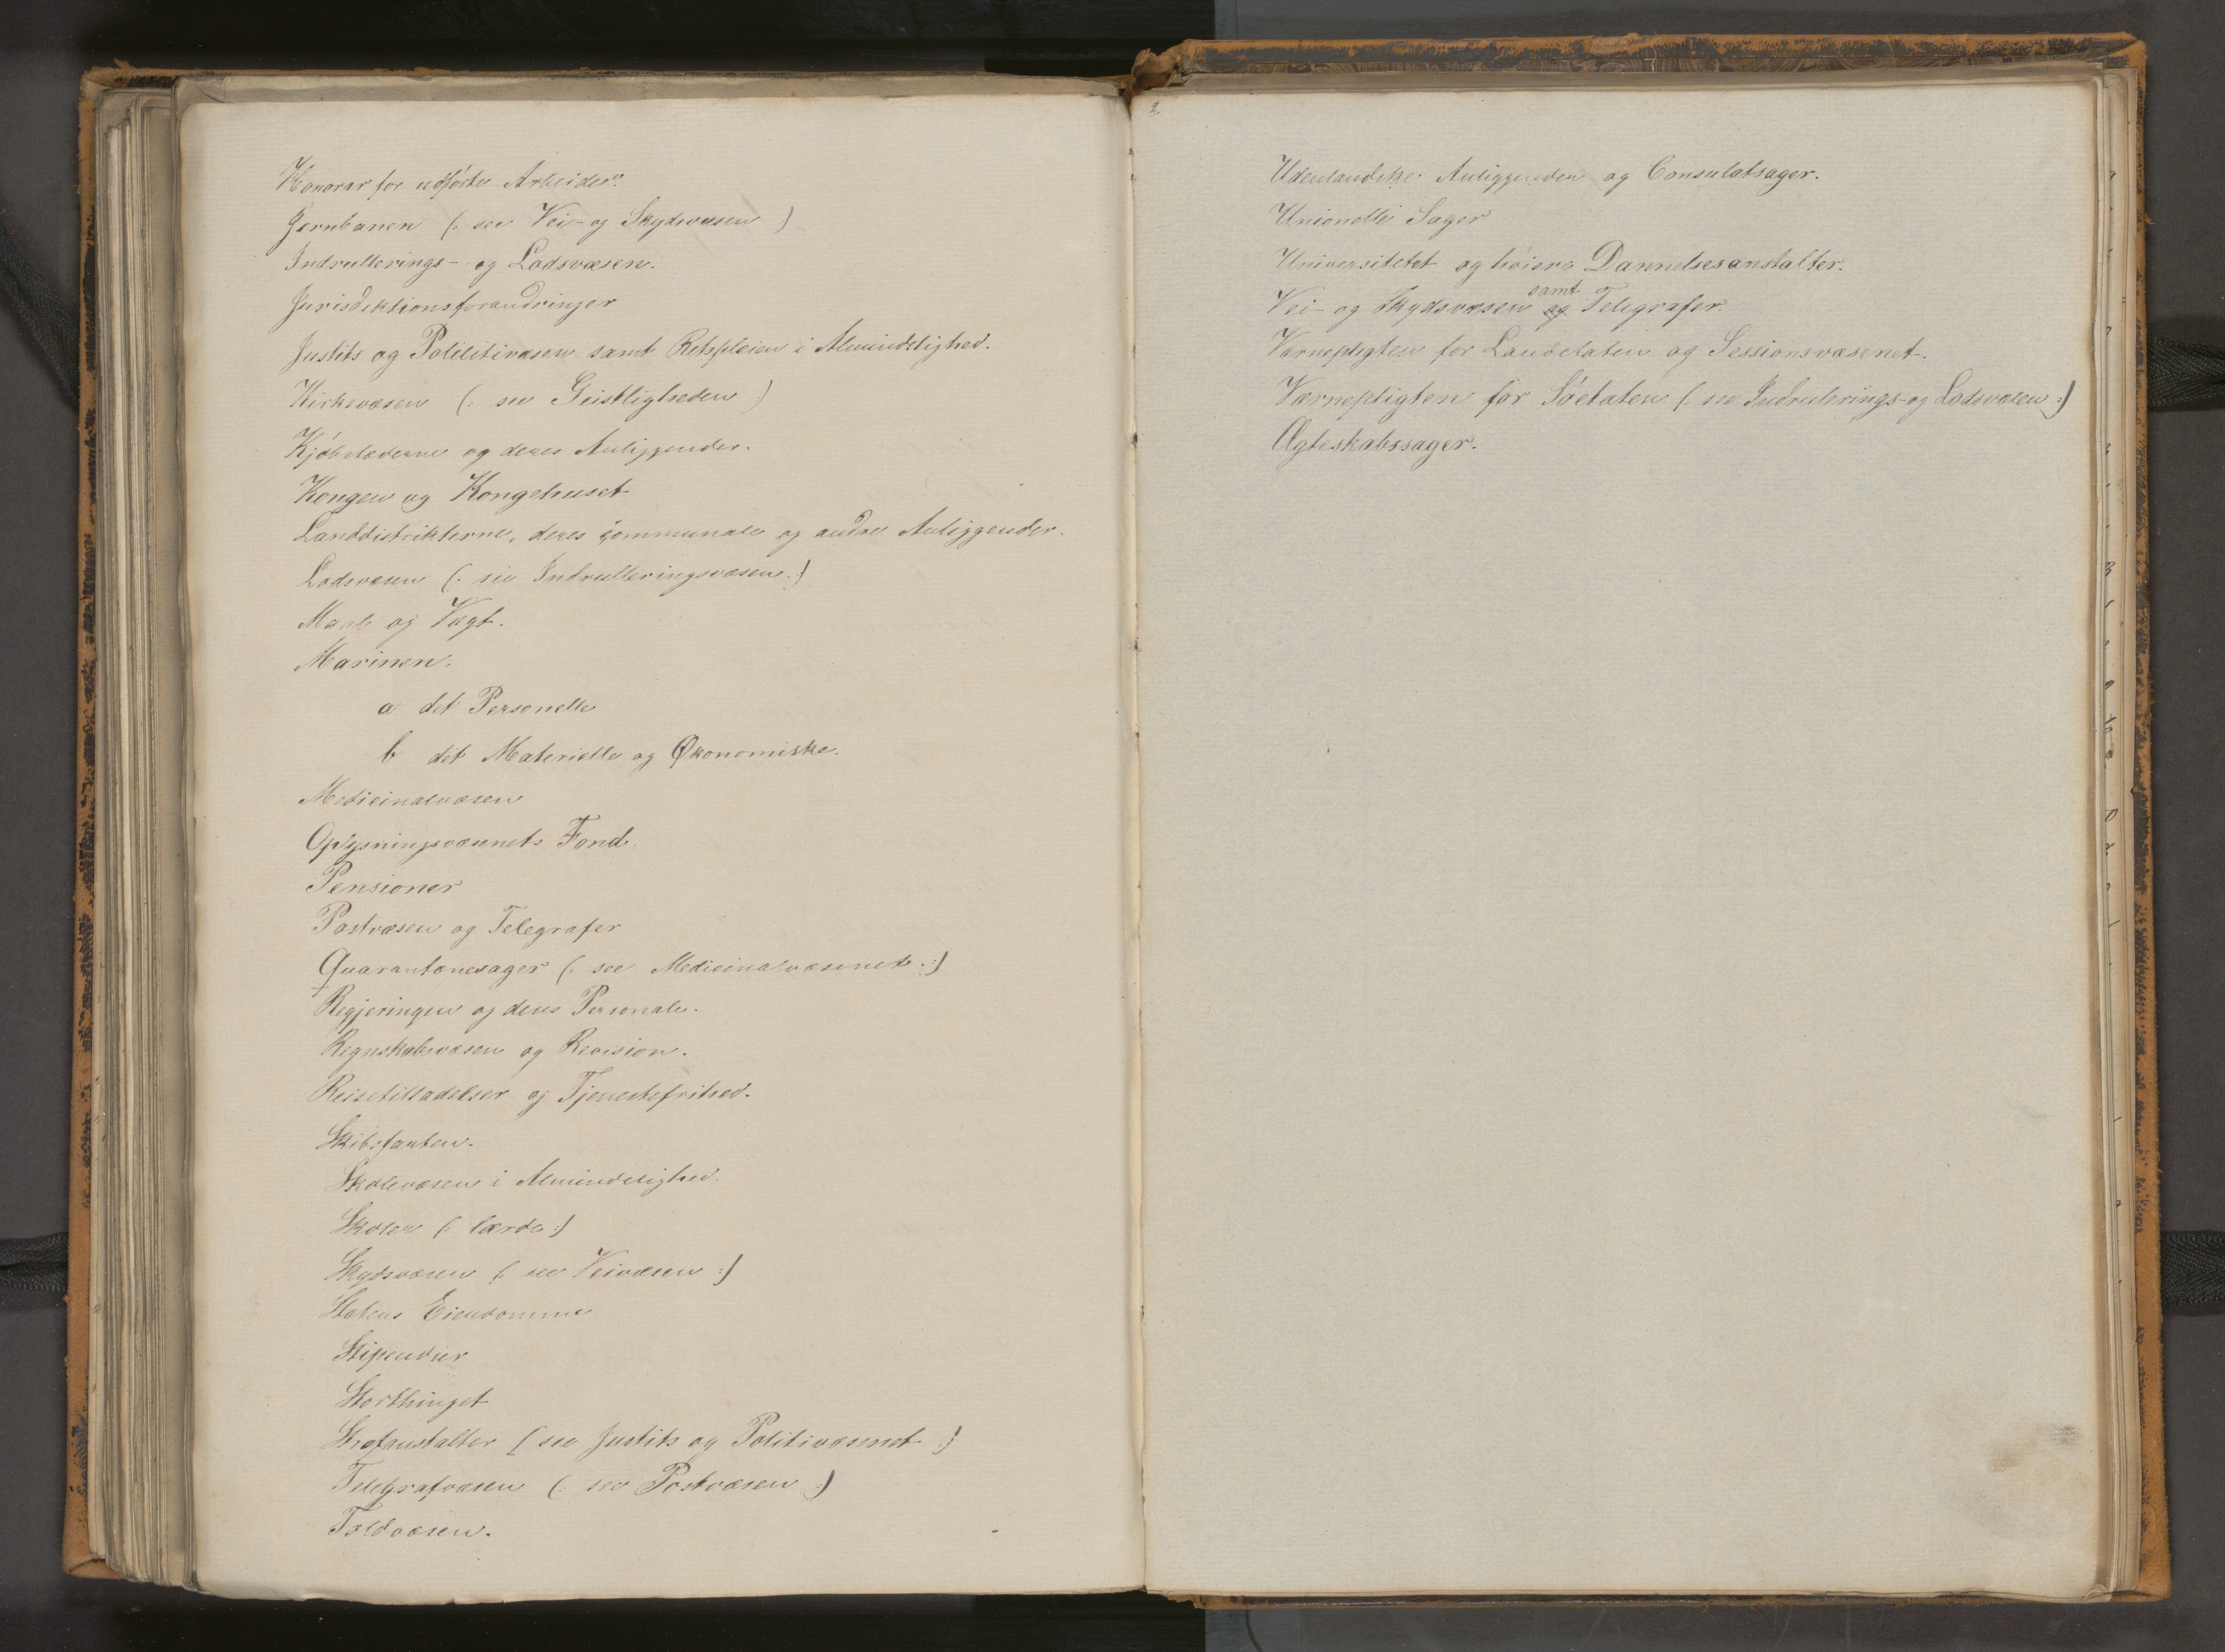 Honorar for udførte Arbeider.
Jernbanen (: see Vei- og Skydsvæsen )
Indrullerings- og Lodsvæsen.
Jurisdiktionsforandringer
Justits og Polititivæsen samt Retspleien i Almindelighed.
Kirkevæsen (: see Geistligheden )
Kjøbstæderne og deres Anliggender.
Kongen og Kongehuset
Landdistrikterne, deres communale og andre Anliggender.
Lodsvæsen (: see Indrulleringsvæsen :)
Maal og Vægt.
Marinen.
a det Personelle
b det Materielle og Økonomiske.
Medicinalvæsen
Oplysningsvæsenets Fond.
Pensioner
Postvæsen og Telegrafer
Quarantænesager (: see Medicinalvæsenet :)
Regjeringen og dens Personale.
Regnskabsvæsen og Revision.
Reisetilladelser og Tjenestefrihed.
Skibsfarten.
Skolevæsen i Almindelighed.
Skoler (: lærde :)
Skydsvæsen (: see Veivæsen :)
Statens Eiendomme
Stipendier
Storthinget
Strafanstalter (see Justits og Politivæsenet :)
Telegrafvæsen (: see Postvæsen :)
Toldvæsen.
2
Udenlandske Anliggender og Consulatsager.
Unionelle Sager
Universitetet og høiere Dannelsesanstalter.
samt
Vei- og Skydsvæsen og Telegrafer.
Værnepligten for Landetaten og Sessionsvæsenet.
Værnepligten for Søetaten (: see Indrulerings- og Lodsvæsen :)
Ægteskabssager.